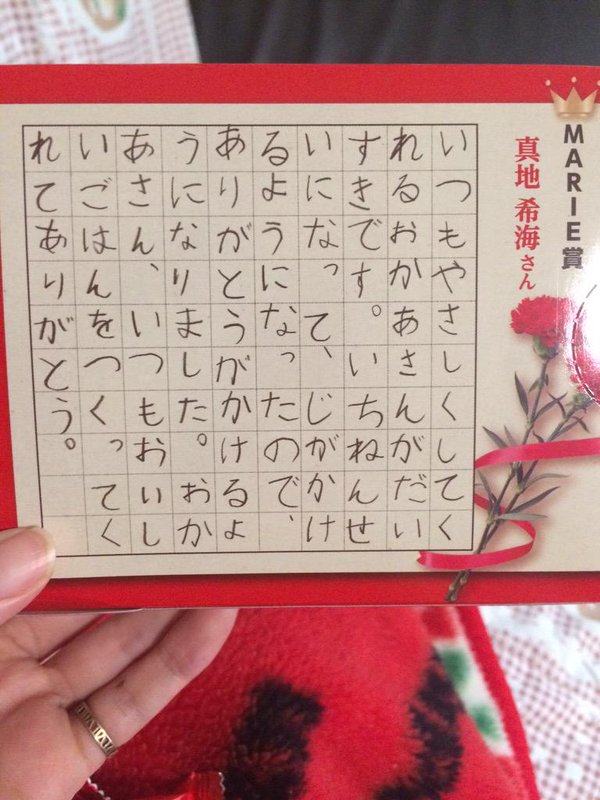 MARIE賞
真地 希海さん
いつもやさしくしてく
れるおかあさんがだい
すきです。いちねんせ
いになって、じがかけ
るようになったので、
ありがとうがかけるよ
うになりました。おか
あさん、いつもおいし
いごはんをつくってく
れてありがとう。